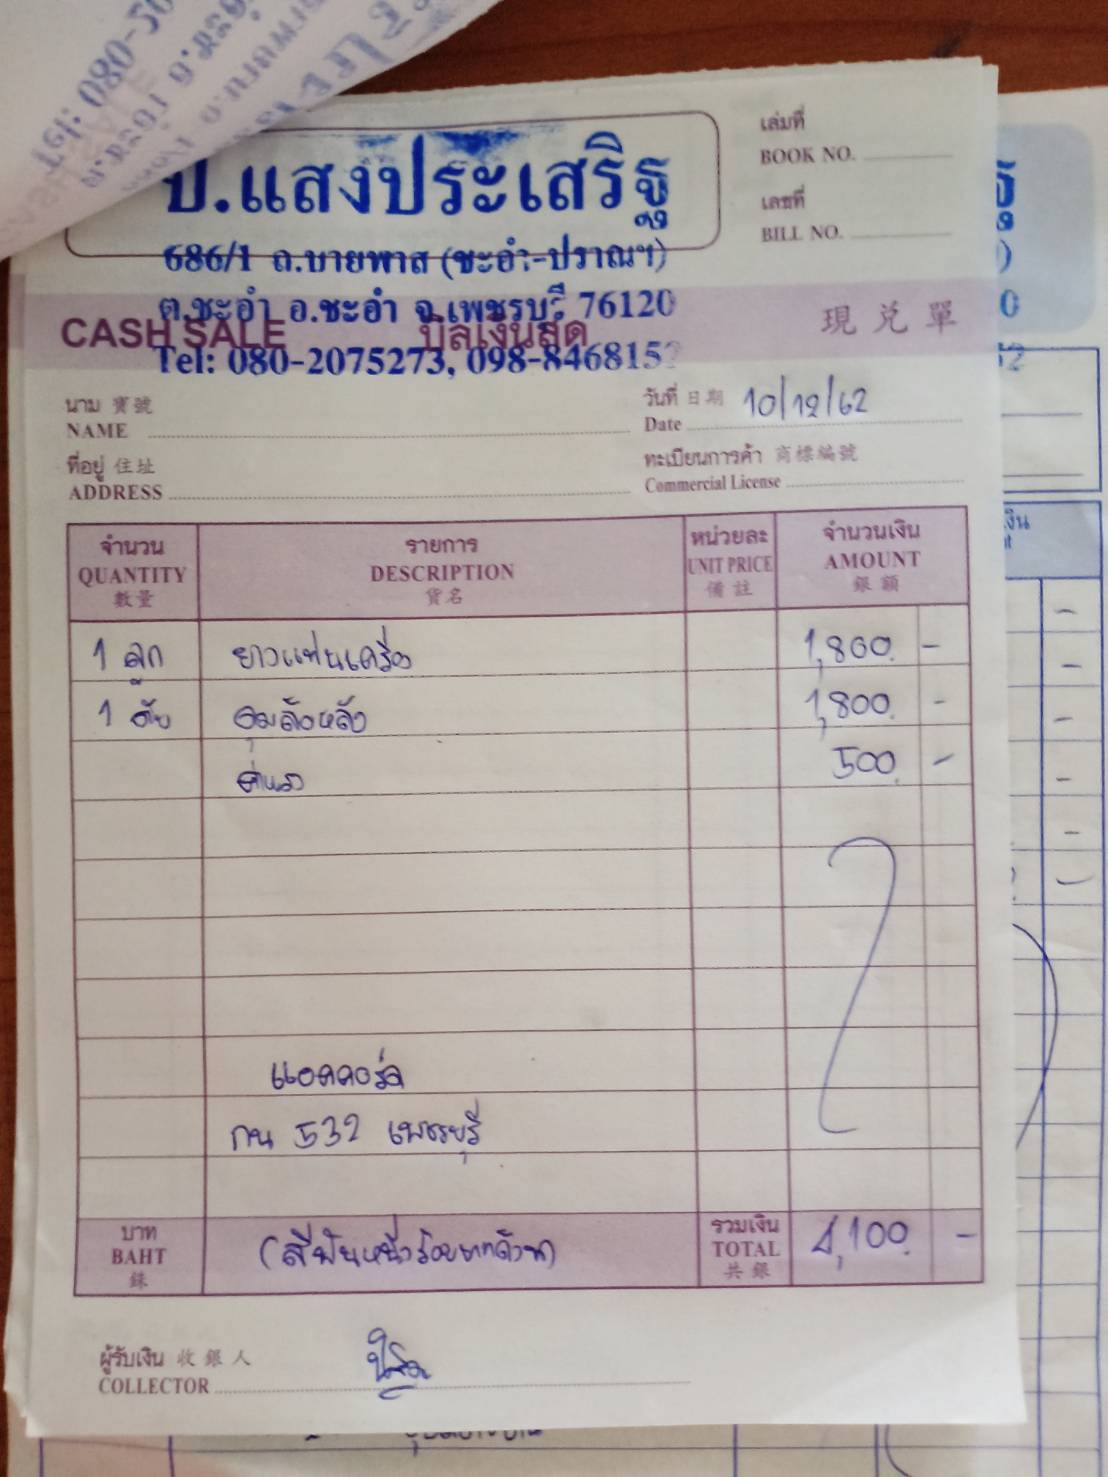 ป.แสงประเสริฐ
686/1 ถ.บายพาส (ชะอำ-ปราณฯ)
ต.ชะอำ อ.ชะอำ จ.เพชรบุรี 76120
Tel: 080-2075273, 098-8468152
เล่มที่
BOOK NO.
เลขที่
BILL NO.
CASH SALE บิลเงินสด 現兌單
นาม 寶號
NAME
วันที่ 日期 10/12/62
Date
ที่อยู่ 住址
ADDRESS
ทะเบียนการค้า 商標編號
Commercial License
จำนวน รายการ หน่วยละ จำนวนเงิน
QUANTITY DESCRIPTION UNIT PRICE AMOUNT
數量 貨名 備註 銀額
1 ลูก ยางแท่นเครื่อง 1,800 -
1 อัน 1,800 -
ค่าแรง 500 -
แอคคอร์ด
กน 532 เพชรบุรี
บาท (สี่พันหนึ่งร้อยบาทถ้วน) รวมเงิน 4,100 -
BAHT TOTAL
銖 共銀
ผู้รับเงิน 收銀人
COLLECTOR